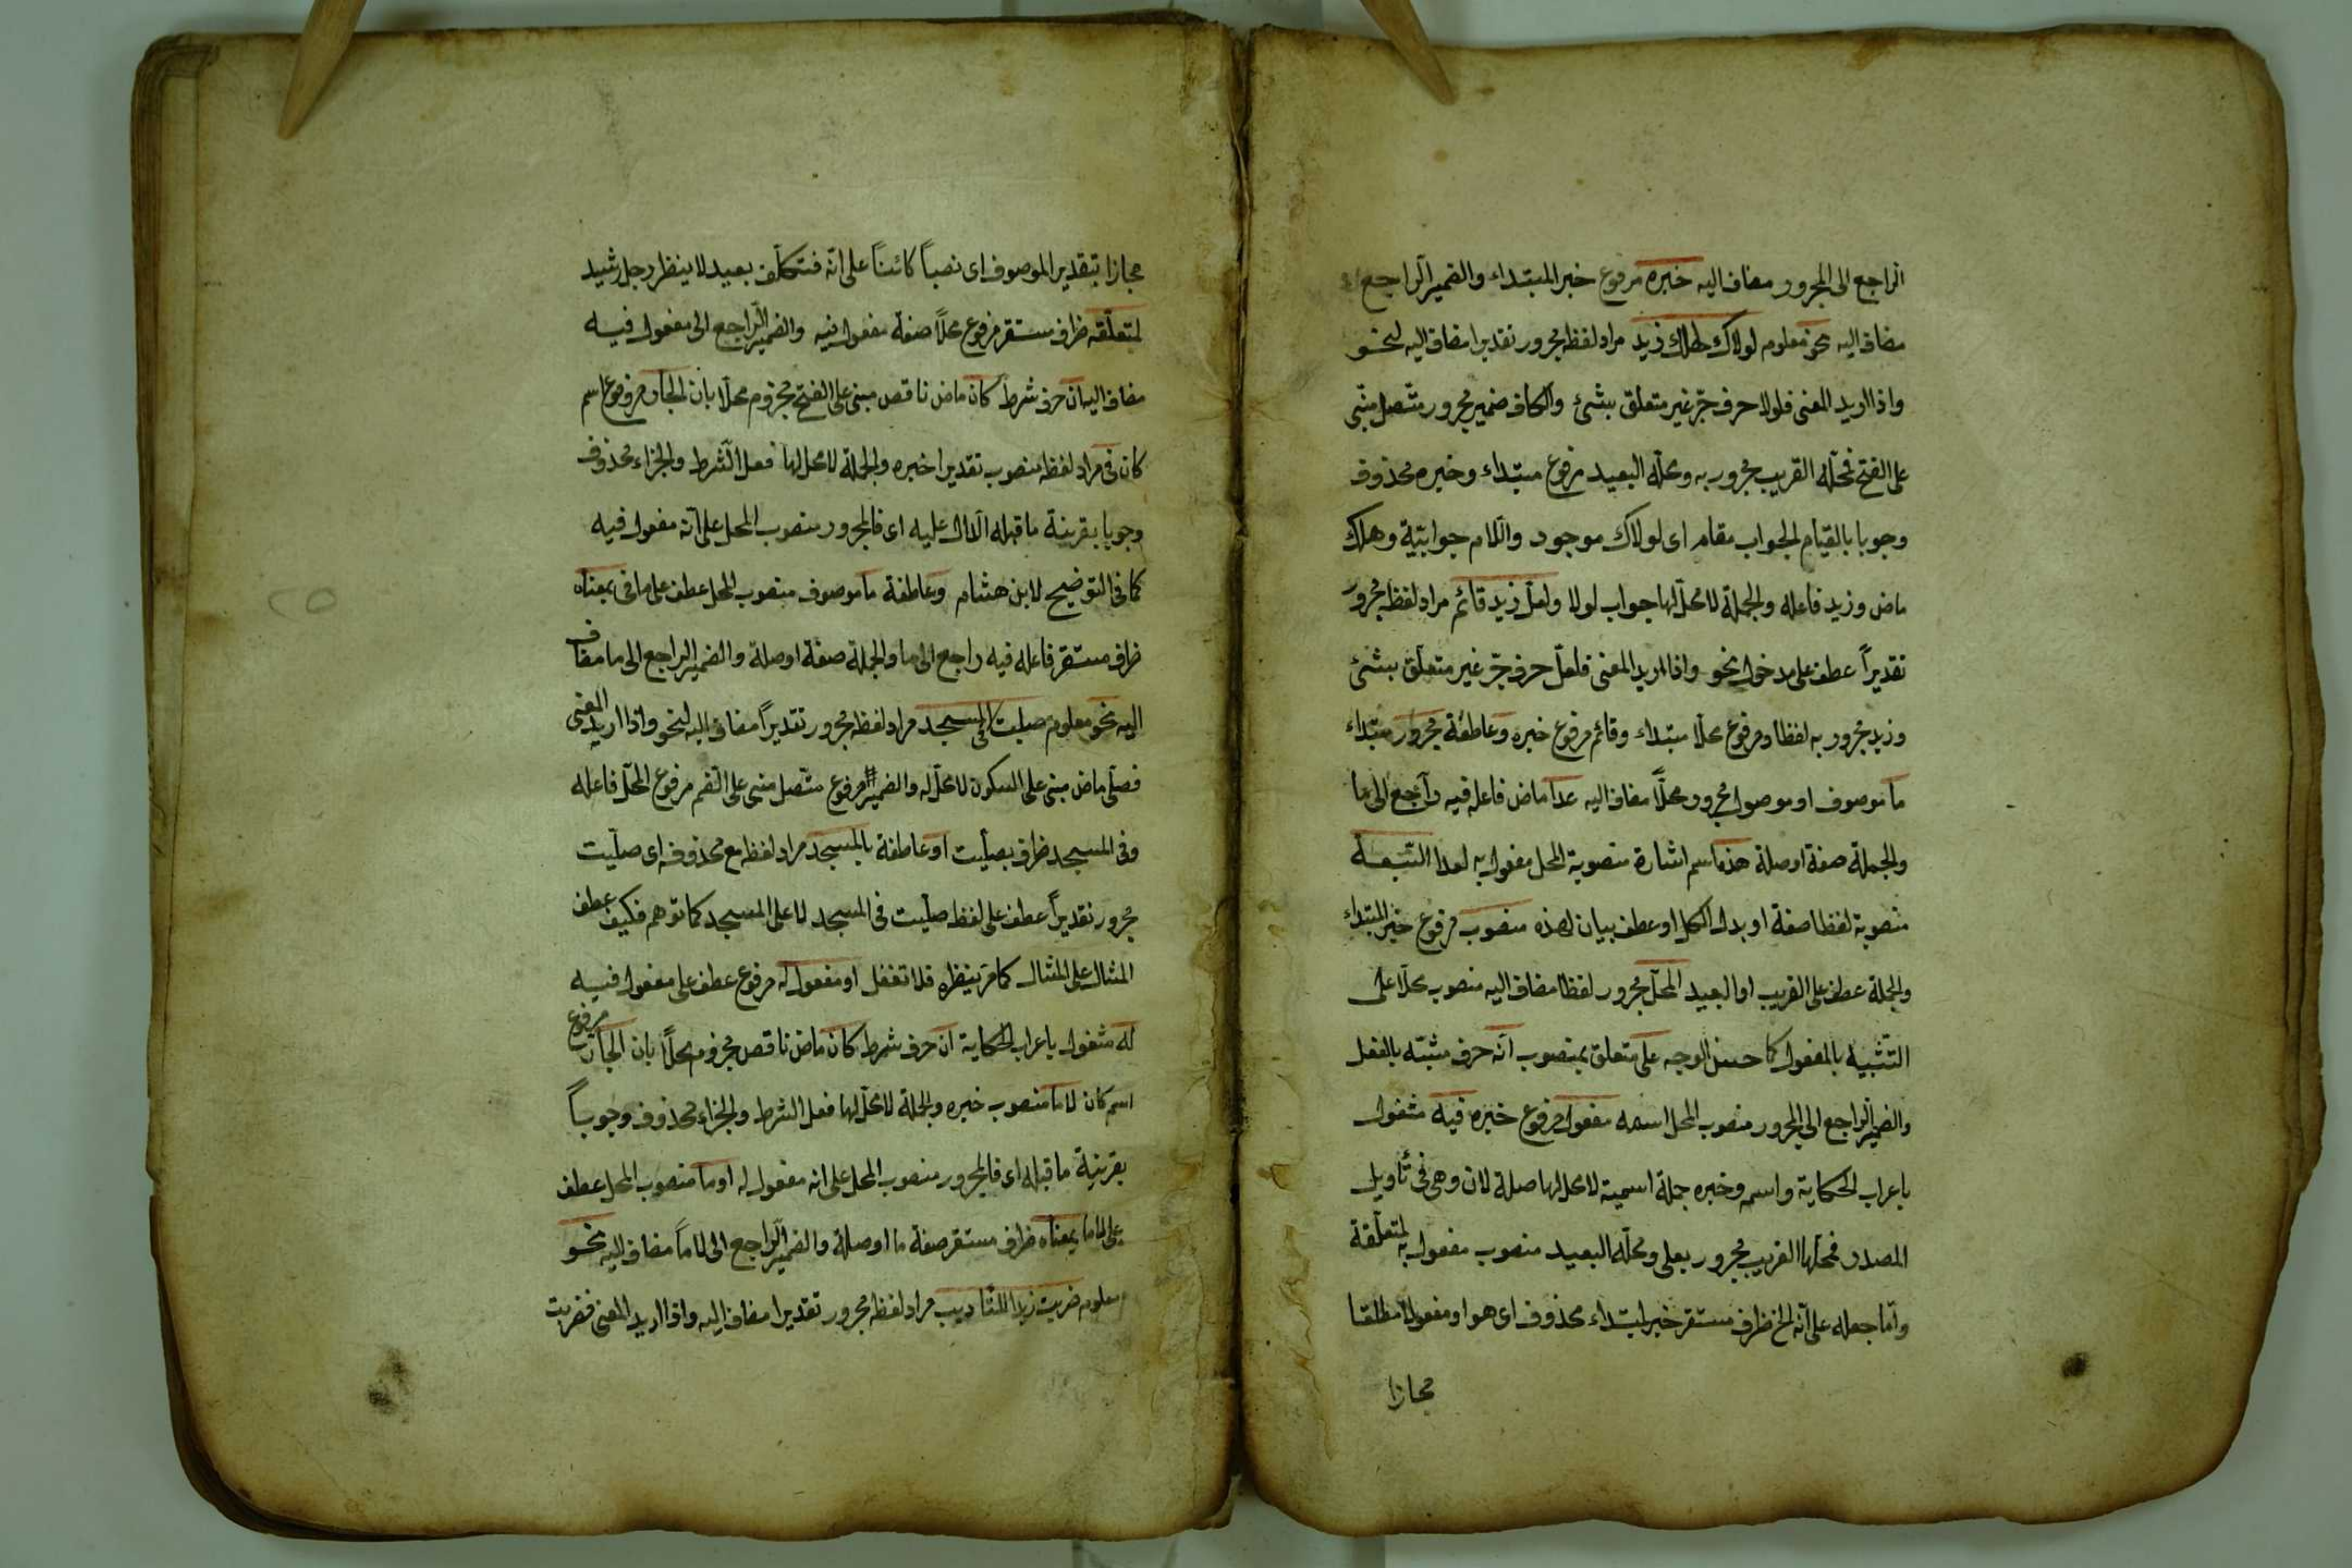 الراجع الى المجرور مضاف اليه خبره مرفوع خبر المبتداء والضمير الراجع
مضاف اليه نحو معلوم لولاك لهلك زيد مراد لفظه مجرور تقديرا مضاف اليه لنحو
واذا اريد المعنى فلولا حرف جرّ غير متعلق بشئ والكاف ضمير مجرور متصل مبنى
على الفتح فمحله القريب مجرور به ومحله البعيد مرفوع مبتداء وخبره محذوف
وجوبا بالقيام الجواب مقام اى لولاك موجود واللام جوابيّة وهلك
ماض وزيد فاعله والجملة لا محلّ لها جواب لولا ولعلّ زيد قائم مراد لفظه مجرور
تقديراً عطف على مدخول نحو واذا اريد المعنى فلعلّ حرف جرّ غير متعلّق بشئ
وزيد مجرور به لفظا ومرفوع محلا مبتداء وقائم مرفوع خبره وعاطفة مجرور مبتداء
ما موصوف او موصول مجرور محلاً مضاف اليه عدا ماض فاعله فيه راجع الى ما
والجملة صفة او صلة هذه اسم اشارة منصوبة المحل مفعول به لعدا السّبعة
منصوبة لفظا صفة او بدل الكل او عطف بيان لهذه منصوب مرفوع خبر المبتداء
والجملة عطف على القريب او البعيد المحلّ مجرور لفظا مضاف اليه منصوب محلا على
التشبيه بالمفعول كما حسن الوجه على متعلق بمنصوب انّه حرف مشبّه بالفعل
والضمير الراجع الى المجرور منصوب المحل اسمه مفعول مرفوع خبره فيه مشغول
باعراب الحكاية واسمه وخبره جملة اسمية لا محل لها صلة لان وهى فى تأويل
المصدر فمحلها القريب مجرور بعلى ومحله البعيد منصوب مفعول به لمتعلّقة
وامّا جعله على انّه الخ ظرف مستقر خبر لمبتداء محذوف اى هو او مفعولا مطلقا
مجازا
مجازا بتقدير الموصوف اى نصباً كائناً على انّه فتكلّف بعيد لا ينظر رجل رشيد
لمتعلّقه ظرف مستقر مرفوع محلاً صفة مفعول فيه والضمير الراجع الى مفعول فيه
مضاف اليه ان حرف شرط كان ماض ناقص مبنى على الفتح مجزوم محلا بان الجار مرفوع اسم
كان فى مراد لفظه منصوب تقديرا خبره والجملة لا محل لها فعل الشّرط والجزاء محذوف
وجوبا بقرينة ما قبله الدال عليه اى فالمجرور منصوب المحل على انّه مفعول فيه
كما فى التوضيح لابن هشام وعاطفة ما موصوف منصوب المحل عطف على ما فى بمعناه
ظرف مستقر فاعله فيه راجع الى ما والجملة صفة او صلة والضمير الراجع الى ما مضاف
اليه نحو معلوم صليت فى المسجد مراد لفظه مجرور تقديراً مضاف اليه لنحو واذا اريد المعنى
فصلّى ماض مبنى على السكون لا محلّ له والضمير مرفوع متّصل مبنى على الضّم مرفوع المحلّ فاعله
وفى المسجد ظرف بصليت او عاطفة بالمسجد مراد لفظه مع محذوفه اى صلّيت
مجرور تقديراً عطف على لفظ صلّيت فى المسجد لا على المسجد كما توهم فكيف عطف
المثال على المثال كما مرّ بنظره فلا تغفل او مفعول له مرفوع عطف على مفعول فيه
له مشغول باعراب الحكاية ان حرف شرط كان ماض ناقص مجزوم محلاً بان الجار مرفوع
اسم كان لاما منصوب خبره والجملة لا محلّ لها فعل الشرط والجزاء محذوف وجوباً
بقرينة ما قبله اى فالمجرور منصوب المحل على انه مفعول له او ما منصوب المحل عطف
على لاما بمعناه ظرف مستقر صفة ما او صلة والضمير الراجع الى لاماً مضاف اليه نحو
معلوم ضربت زيدا للتأديب مراد لفظه مجرور تقديرا مضاف اليه واذا اريد المعنى فضربت
٢٥